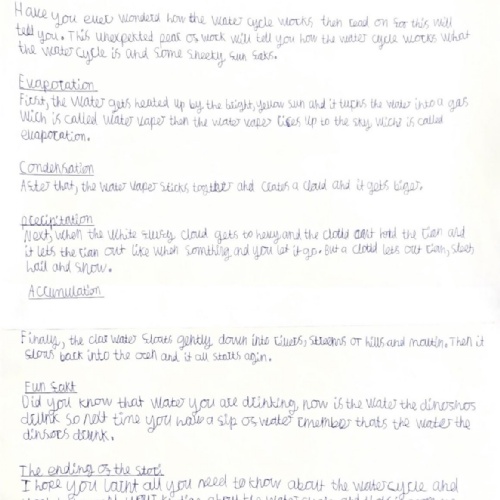 Have you ever wonderd how the water cycle works then read on for this will
tell you. This unexpekted pear of work will tell you how the water cycle works what
the water cycle is and some sneeky fun faks.
Evaporation
First, the water gets heated up by the bright, yellow sun and it turns the water into a gas
wich is called water vaper then the water vaper rises up to the sky, wich is called
evaporation.
Condensation
After that, the water vaper sticks together and creats a cloud and it gets biger.
precipitation
Next, when the white fluffy cloud gets to heavy and the cloud cant hold the rian and
it lets the rian out like when somthing and you let it go. But a cloud lets out rian, sleet,
hail and snow.
Accumulation
Finally, the clar water floats gently down into rivers, streems or hills and moutin. Then it
flows back into the osen and it all starts agin.
Fun fakt
Did you know that water you are drinking now is the water the dinoshos
drunk so next time you have a sip of water rmember thats the water the
dinsors drunk.
The ending of the stori
I hope you larnt all you need to know about the water cycle and